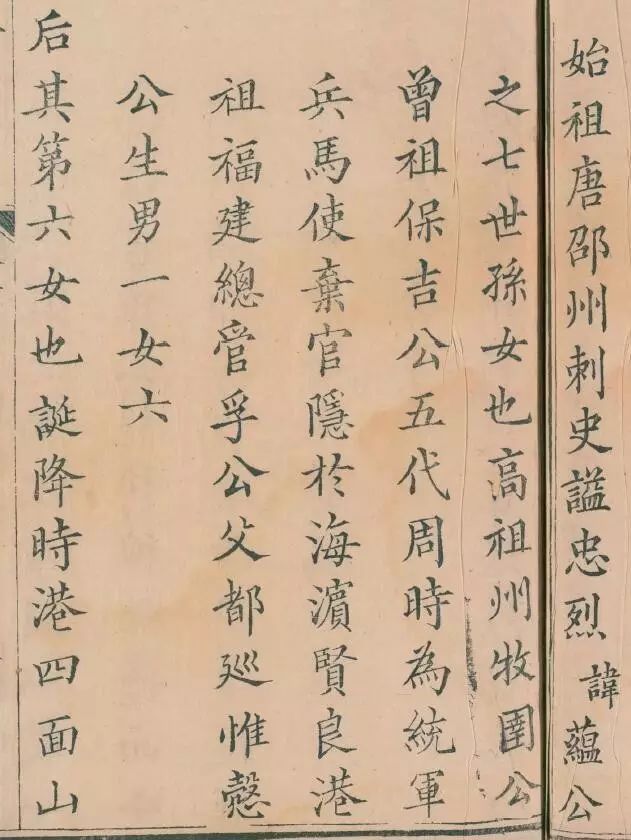 始祖唐邵州刺史諡忠烈諱蘊公
之七世孫女也高祖州牧圉公
曾祖保吉公五代周時為統軍
兵馬使棄官隱於海濵賢良港
祖福建總管孚公父都廵惟慤
公生男一女六
后其第六女也誕降時港四面山